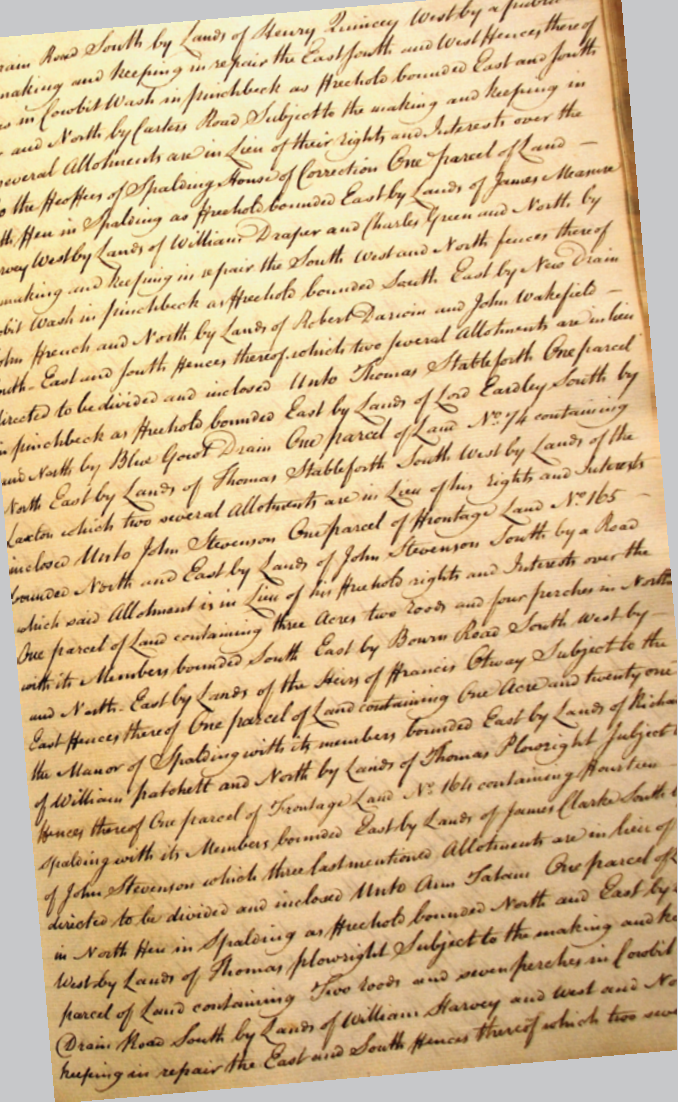 rain Road South by Lands of Henry Quincey West by a public
making and keeping in repair the East South and West Fences thereof
in Cowbit Wash in pinchbeck as Freehold bounded East and South
and North by Carters Road Subject to the making and keeping in
several Allotments are in Lieu of their rights and Interests over the
to the Feoffees of Spalding House of Correction One parcel of Land —
th Fen in Spalding as Freehold bounded East by Lands of James Measure
rvey West by Lands of William Draper and Charles Green and North by
making and keeping in repair the South West and North fences thereof
bit Wash in pinchbeck as Freehold bounded South East by New Drain
ohn French and North by Lands of Robert Darwin and John Wakefield —
orth-East and South Fences thereof which two several Allotments are in lieu
directed to be divided and inclosed Unto Thomas Stableforth One parcel
in pinchbeck as Freehold bounded East by Lands of Lord Eardley South by
and North by Blue Gowt Drain One parcel of Land No. 74 containing
North East by Lands of Thomas Stableforth South West by Lands of the
Laxton which two several Allotments are in Lieu of his rights and Interests
inclosed Unto John Stevenson One parcel of Frontage Land No. 165 —
bounded North and East by Lands of John Stevenson South by a Road
which said Allotment is in Lieu of his Freehold rights and Interests over the
One parcel of Land containing three Acres two roods and four perches in North
with its Members bounded South East by Bourn Road South West by —
and North-East by Lands of the Heirs of Francis Otway Subject to the
East Fences thereof One parcel of Land containing One Acre and twenty one
the Manor of Spalding with its members bounded East by Lands of Richa
of William patchett and North by Lands of Thomas Plowright Subject
Fences thereof One parcel of Frontage Land No. 164 containing Fourteen
Spalding with its Members bounded East by Lands of James Clarke South
of John Stevenson which three last mentioned Allotments are in lieu of
directed to be divided and inclosed Unto Ann Tatam One parcel of
in North Fen in Spalding as Freehold bounded North and East by
West by Lands of Thomas plowright Subject to the making and ke
parcel of Land containing Two roods and seven perches in Cowbit
Drain Road South by Lands of William Harvey and West and No
keeping in repair the East and South Fences thereof which two seve